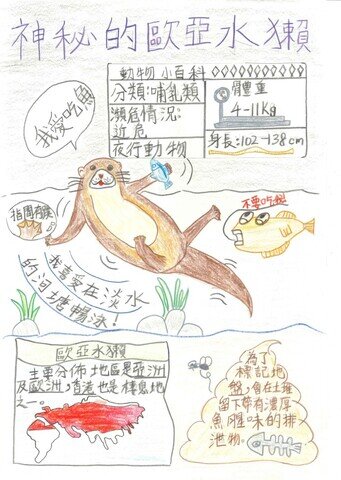 神秘的歐亞水獺
動物小百科
分類:哺乳類
瀕危情況:
近危
夜行動物
體重
4-11kg
身長:102-138cm
我愛吃魚
指間有蹼
不要吃我
我喜愛在淡水
的河塘暢泳!
歐亞水獺
主要分佈地區是亞洲
及歐洲,香港也是棲息地
之一。
為了
標記地
盤,會在土堆
留下帶有濃厚
魚腥味的排
泄物。